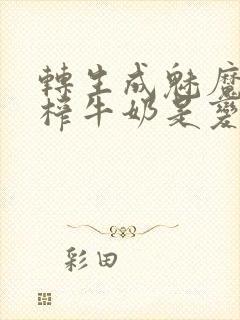 轉生成魅魔
榨牛奶是變
彩田